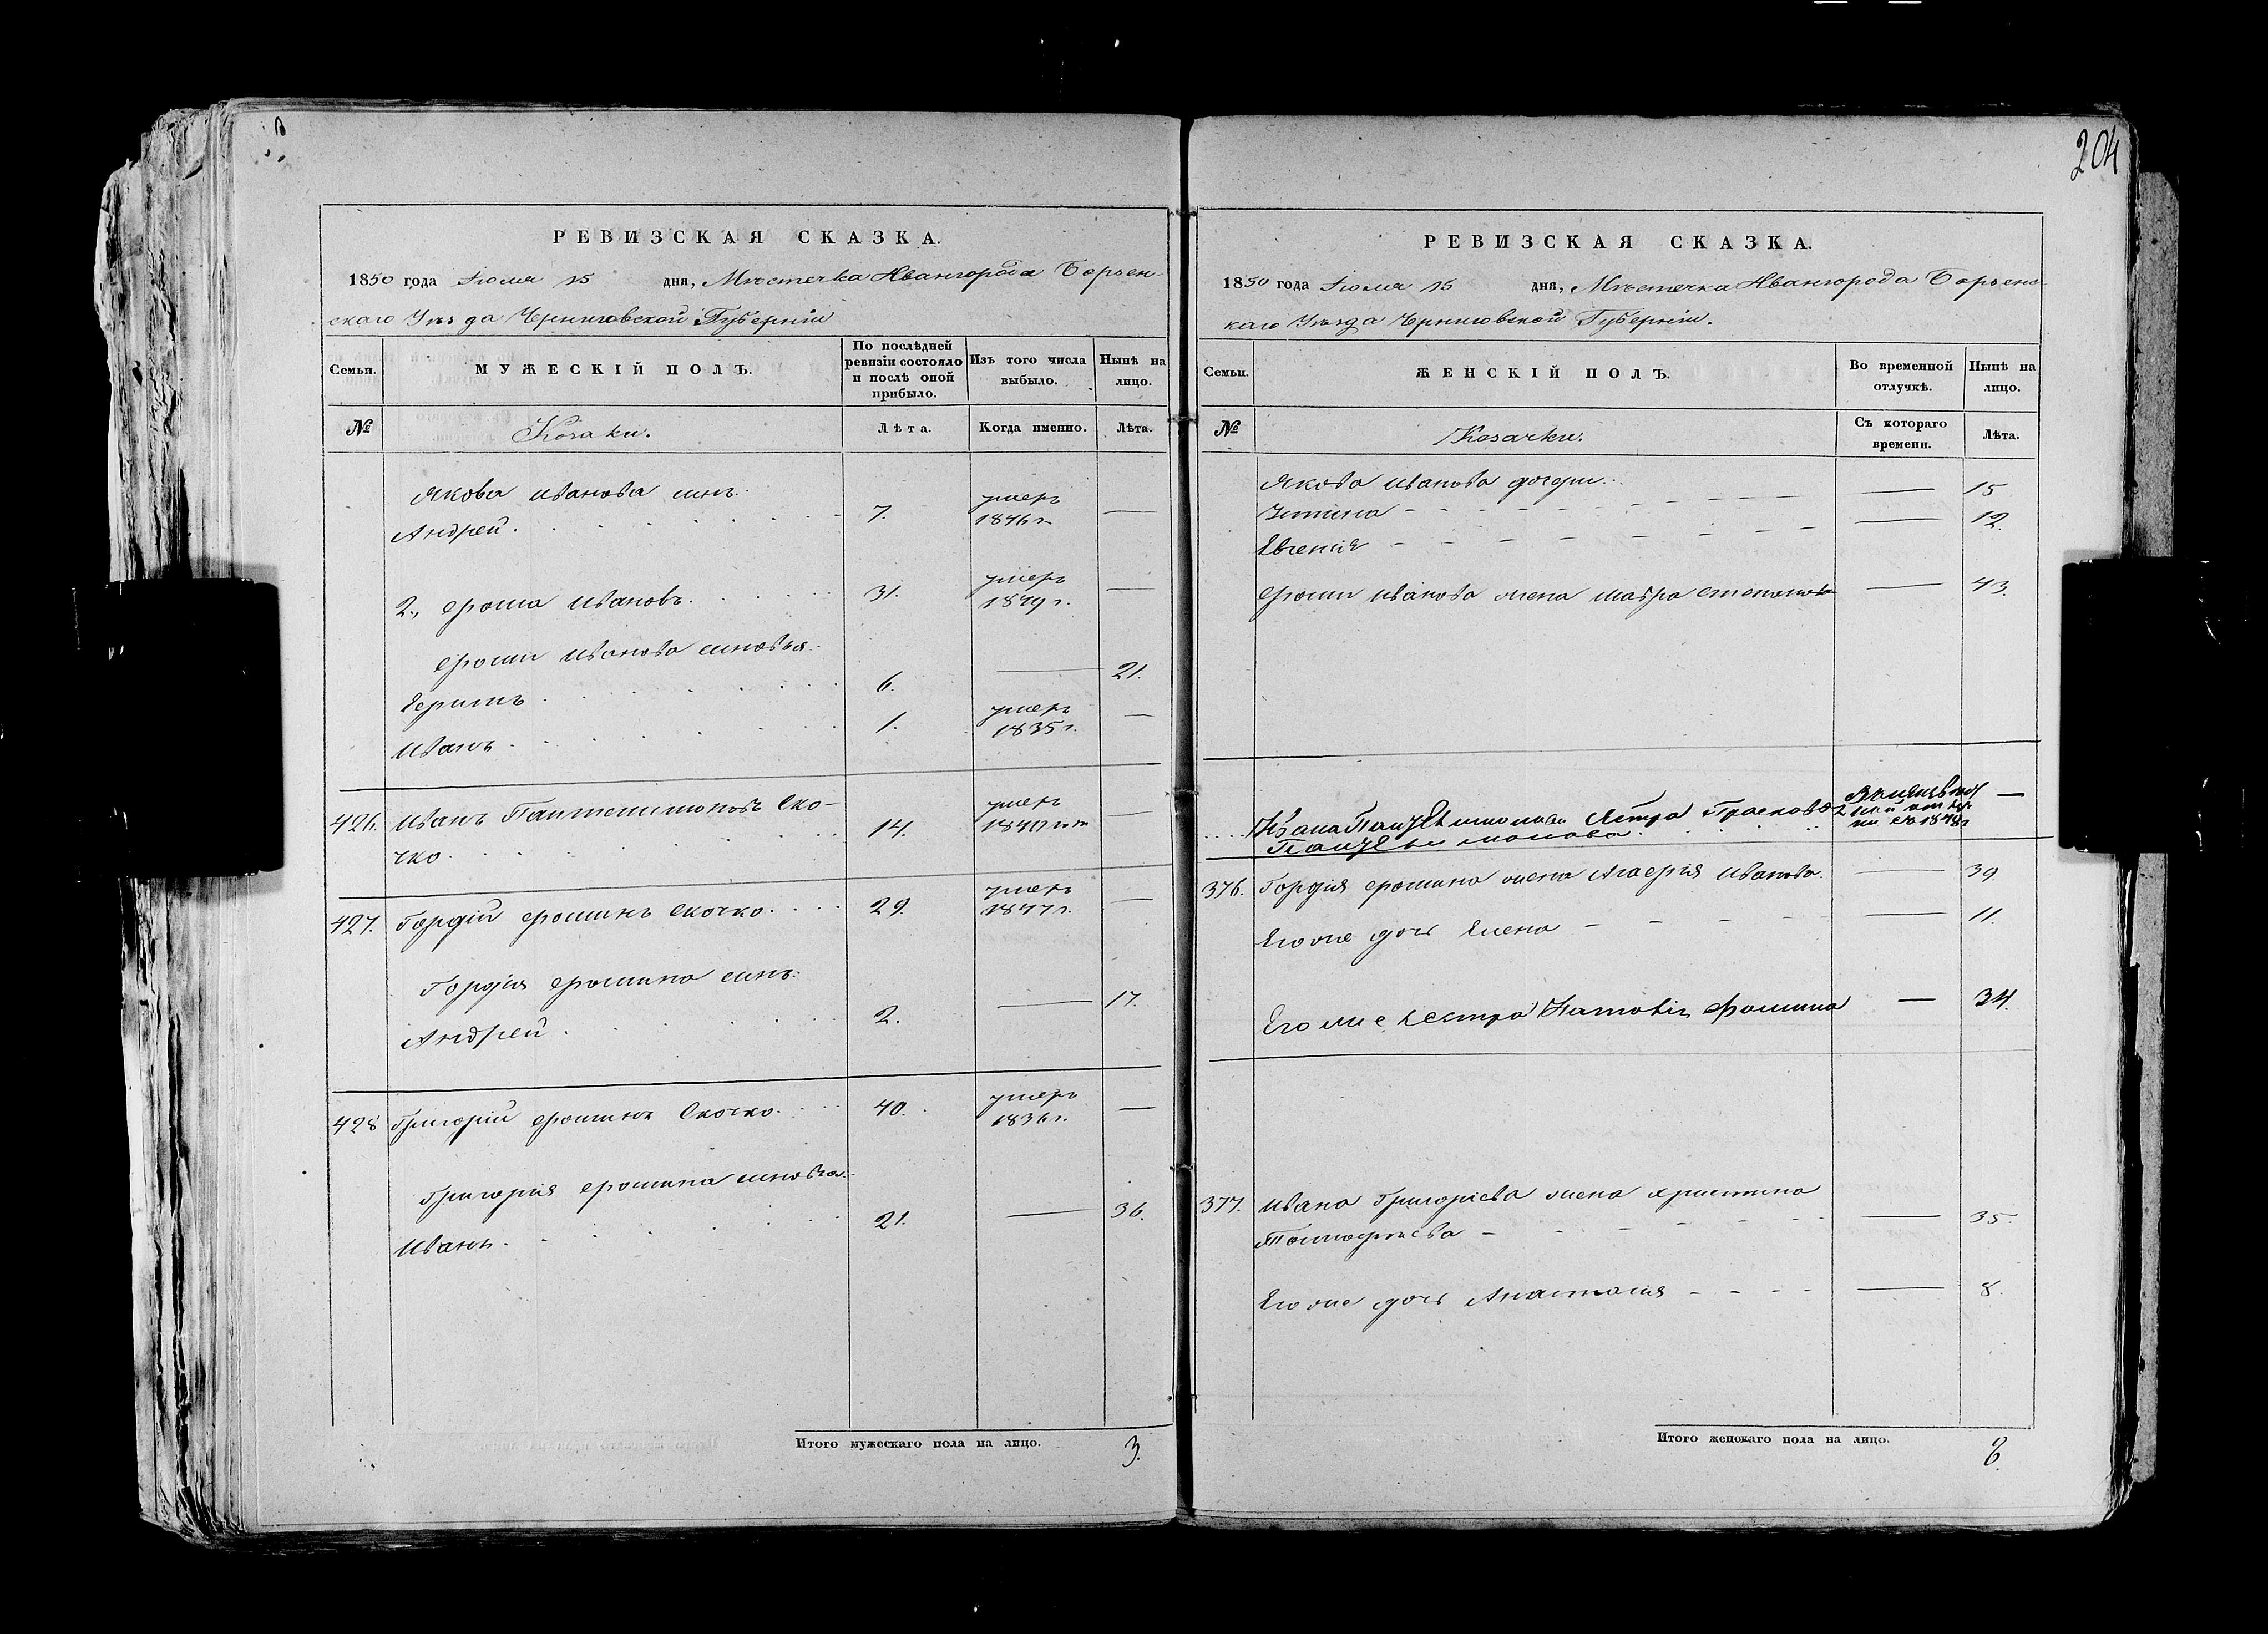 204
РЕВИЗСКАЯ СКАЗКА.
1850 года Іюля 15 дня, Мѣстечка Ивангорода Борзен-
скаго Уѣзда Черниговской Губерніи
Семьи.
МУЖЕСКІЙ ПОЛЪ.
По послѣдней ревизіи состояло и послѣ оной прибыло.
Изъ того числа выбыло.
Нынѣ на лицо.
№
Козаки.
Лѣта.
Когда именно.
Лѣта.
Якова Иванова сынъ
Андрей. 7. умеръ 1846 г. —
2., Фома Ивановъ. 31. умеръ 1849 г. —
Фомы Иванова сыновья
Ефимъ 6. — 21.
Иванъ. 1. умеръ 1835 г. —
426. Иванъ Пантелимоновъ Ско-
чко. 14. умеръ —
427. Гордій Фоминъ Скочко. 29. умеръ 1847 г. —
Гордія Фомина сынъ
Андрей. 2. — 17.
428 Григорій Фоминъ Скочко. 40. умеръ 1836 г. —
Григорія Фомина сыновья
Иванъ. 21. — 36.
Итого мужескаго пола на лицо. 3.
РЕВИЗСКАЯ СКАЗКА.
1850 года Іюля 15 дня, Мѣстечка Ивангорода Борзенс
каго Уѣзда Черниговской Губерніи.
Семьи.
ЖЕНСКІЙ ПОЛЪ.
Во временной отлучкѣ.
Нынѣ на лицо.
№
Козачки.
Съ котораго времени.
Лѣта.
Якова Иванова дочери
— 15
— 12.
Евгенія
Фомы Иванова жена Мавра Степанова — 43.
Ивана Сестра Прасковья —
376. Гордія Фомина жена Иванова. — 39
Его же дочь Елена — 11.
Его же Сестра Фомина — 34.
377. Ивана Григоріева жена Христина
— 35.
Его же дочь Анастасія — 8.
Итого женскаго пола на лицо.